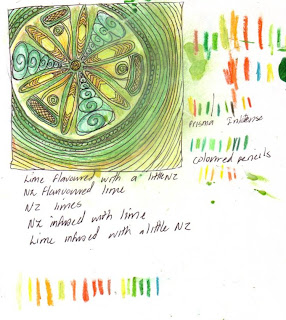 Lime flavoured with a little NZ
NZ flanvoured lime
NZ limes
NZ infused with lime
Lime infused with a little NZ
Prisma Inktense
coloured pencils